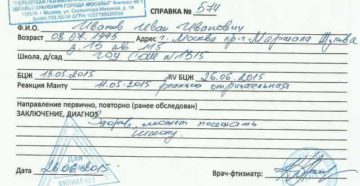 СПРАВКА № 574
Ф.И.О. Иванов Иван Иванович
Возраст 08.07.1999 Адрес г. Москва пр-т Маршала Жукова
д. 15 кв 115
Школа, д/сад ГОУ СОШ № 1515
БЦЖ 15.05.2015 RV БЦЖ 26.06.2015
Реакция Манту 11.05.2015 реакция отрицательная
Направление первично, повторно (ранее обследован)
ЗАКЛЮЧЕНИЕ, ДИАГНОЗ
Здоров, может посещать
школу.
Дата 26.06.2015
Врач-фтизиатр:
ФИЛИАЛ № 1